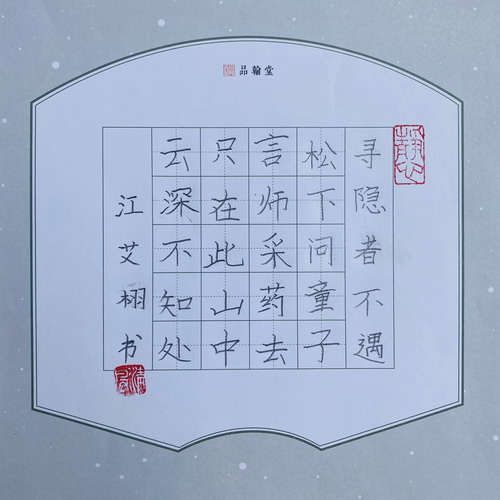 品翰堂
静心
寻隐者不遇
松下问童子
言师采药去
只在此山中
云深不知处
江艾栩书